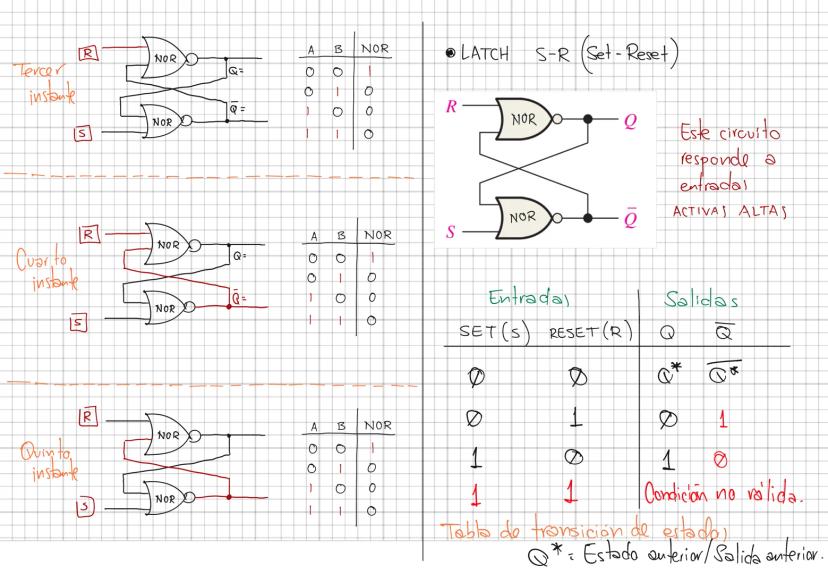 Tercer
instante
R
NOR
Q=
Q̅=
NOR
S
A B NOR
0 0 1
0 1 0
1 0 0
1 1 0
Cuarto
instante
R
NOR
Q=
Q̅=
NOR
S̅
A B NOR
0 0 1
0 1 0
1 0 0
1 1 0
Quinto
instante
R̅
NOR
NOR
S
A B NOR
0 0 1
0 1 0
1 0 0
1 1 0
• LATCH S-R (Set-Reset)
R
NOR
Q
NOR
S
Q̅
Este circuito
responde a
entradas
ACTIVAS ALTAS
Entradas Salidas
SET(S) RESET(R) Q Q̅
0 0 Q* Q̅*
0 1 0 1
1 0 1 0
1 1 Condición no válida.
Tabla de transición de estados
Q*= Estado anterior/Salida anterior.